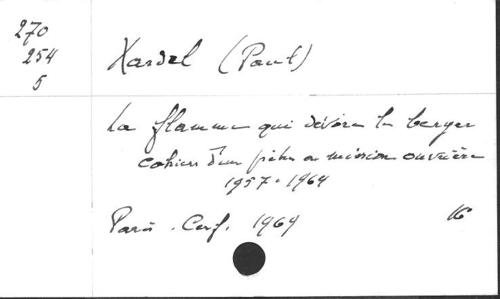 270
254
5
Xardel (Paul)
La flamme qui dévore le berger
cahiers d'un prêtre en mission ouvrière
1957-1964
Paris. Cerf. 1969
16